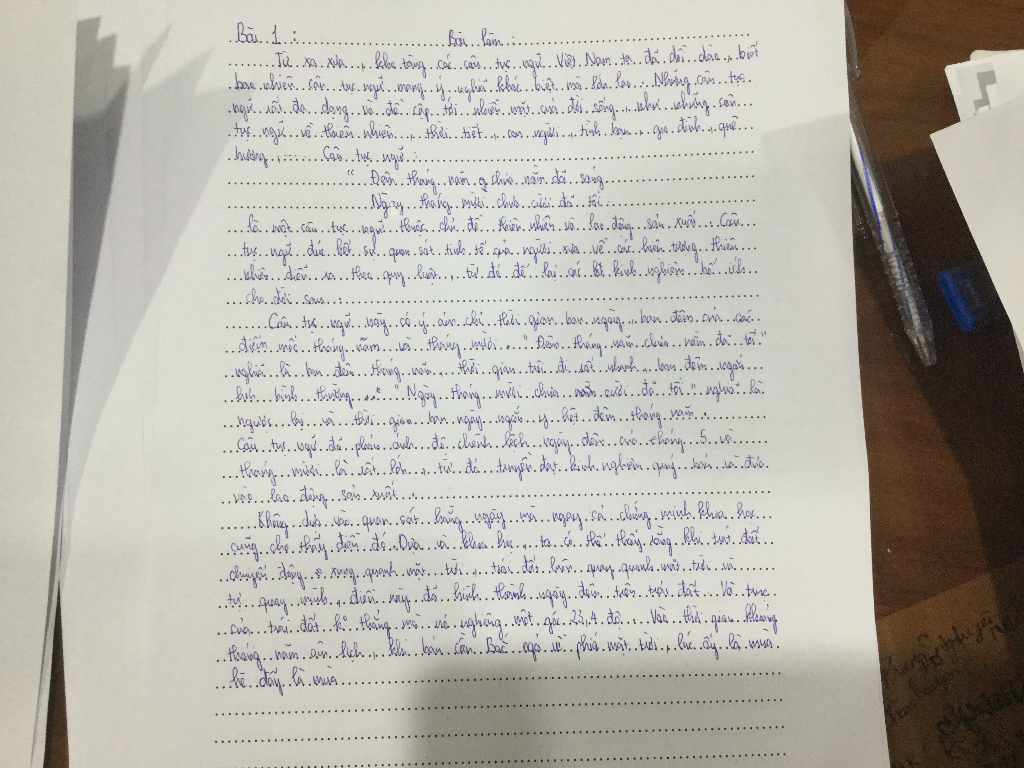 Bài 1 : Bài làm :
Từ xa xưa, kho tàng các câu tục ngữ Việt Nam ta đã dồi dào, biết
bao nhiên câu tục ngữ mang ý nghĩa khác biệt mà lớn lao. Những câu tục
ngữ rất đa dạng và đề cập tới nhiều mặt của đời sống, như những câu
tục ngữ về thiên nhiên, thời tiết, con người, tình bạn, gia đình, quê
hương,.... Câu tục ngữ :
" Đêm tháng năm chưa nằm đã sáng
Ngày tháng mười chưa cười đã tối.
là một câu tục ngữ thuộc chủ đề thiên nhiên và lao động sản xuất. Câu
tục ngữ đúc kết sự quan sát tinh tế của người xưa về các hiện tượng thiên
nhiên diễn ra theo quy luật, từ đó để lại các kinh nghiệm bổ ích
cho đời sau.
Câu tục ngữ này có ý ám chỉ thời gian ban ngày, ban đêm của các
điểm mốc tháng năm và tháng mười. " Đêm tháng năm chưa nằm đã tối "
nghĩa là ban đêm tháng năm, thời gian trôi đi rất nhanh, ban đêm ngắn
hơn bình thường. " Ngày tháng mười chưa cười đã tối " nghĩa là
ngược lại và thời gian ban ngày ngắn y hệt đêm tháng năm.
Câu tục ngữ đã phản ánh độ chênh lệch ngày đêm của tháng 5 và
tháng mười là rất lớn, từ đó truyền đạt kinh nghiệm quý báu và đưa
vào lao động sản xuất.
Không dựa vào quan sát hằng ngày mà ngay cả chứng minh khoa học
cũng cho thấy điều đó. Dựa và khoa học, ta có thể thấy rằng khi trái đất
chuyển động xung quanh mặt trời, trái đất luôn quay quanh mặt trời và
tự quay mình, điều này đã hình thành ngày đêm trên trái đất. Với trục
của trái đất thẳng mà nó nghiêng một góc 23,4 độ. Vào thời gian khoảng
tháng năm âm lịch, khi bán cầu Bắc ngả về phía mặt trời, lúc ấy là mùa
hè đấy là mùa